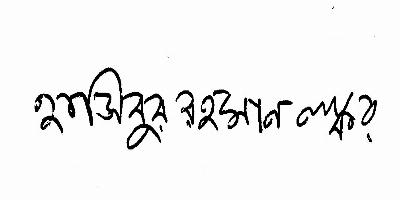 রহমান লস্কর